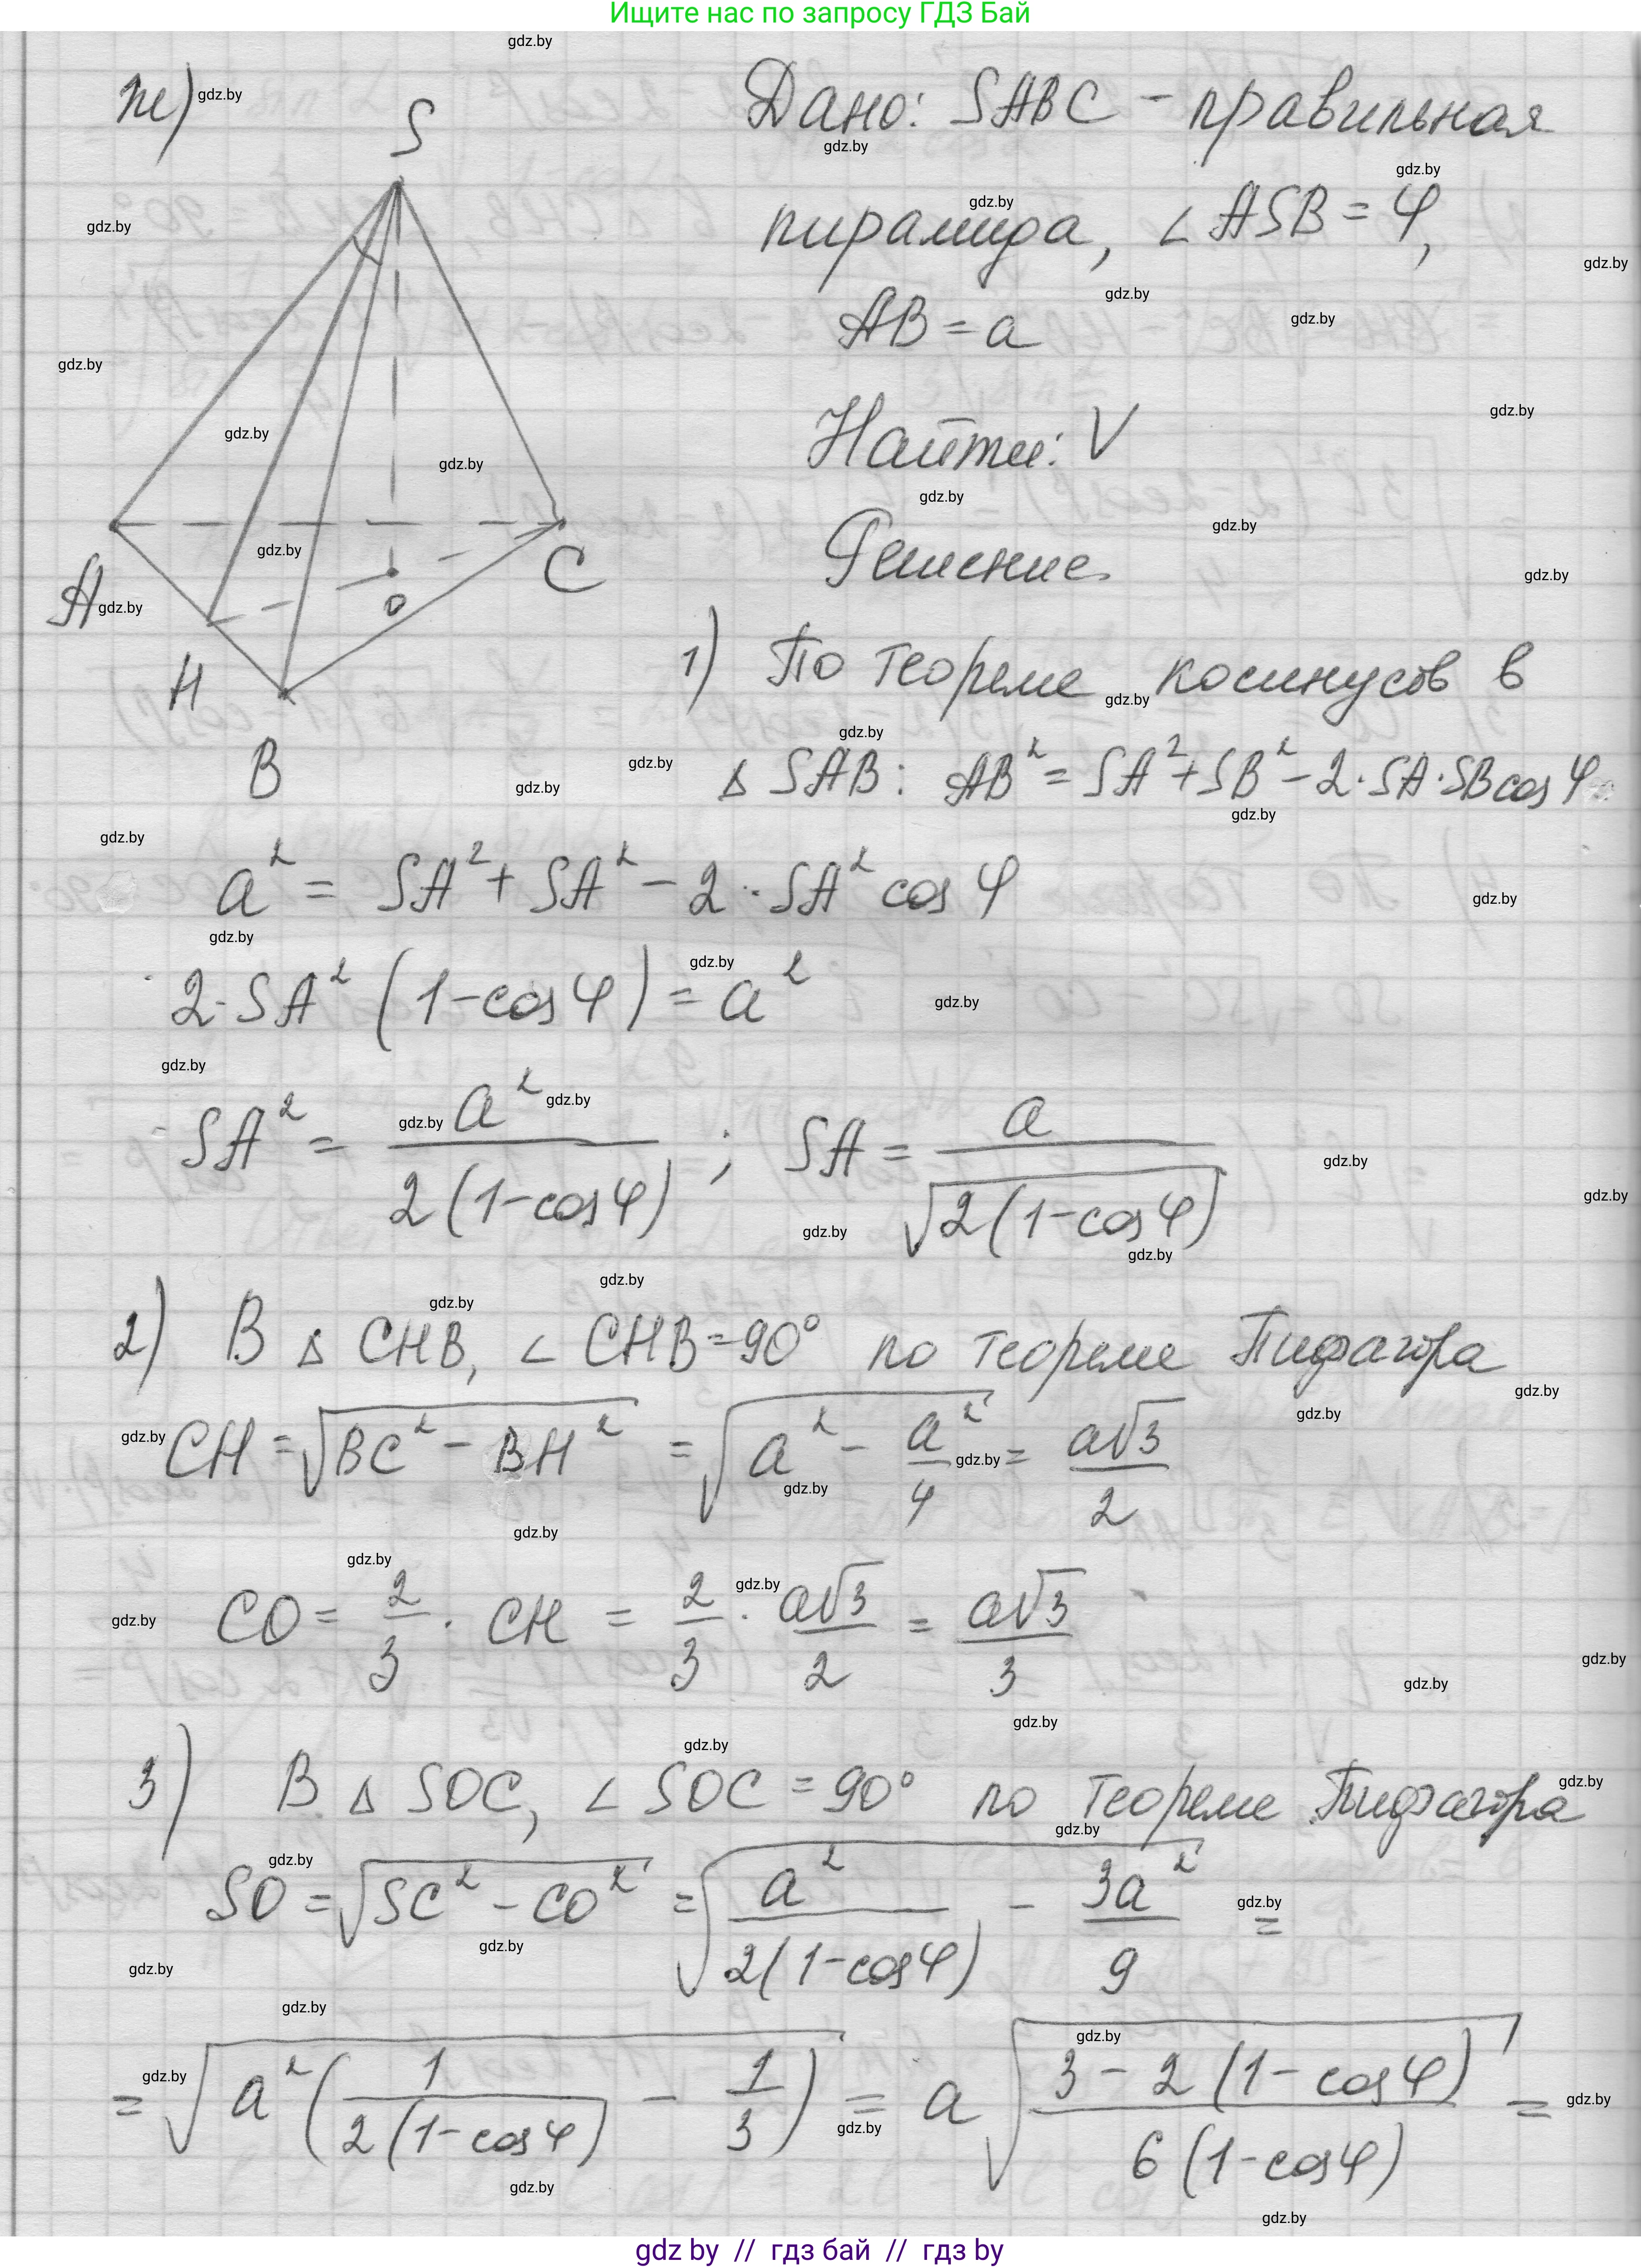 Ищите нас по запросу ГДЗ Бай
ж)
S
A
H
B
C
O
Дано: SABC - правильная
пирамида, ∠ASB = φ,
AB = a
Найти: V
Решение.
1) По теореме косинусов в
Δ SAB: AB² = SA² + SB² - 2·SA·SB cos φ
a² = SA² + SA² - 2·SA² cos φ
2·SA² (1 - cos φ) = a²
SA² = a² / 2(1 - cos φ); SA = a / √2(1 - cos φ)
2) В Δ CHB, ∠CHB = 90° по теореме Пифагора
CH = √BC² - BH² = √a² - a²/4 = a√3/2
CO = 2/3 · CH = 2/3 · a√3/2 = a√3/3
3) В Δ SOC, ∠SOC = 90° по теореме Пифагора
SO = √SC² - CO² = √a²/2(1 - cos φ) - 3a²/9 =
= √a²(1/2(1 - cos φ) - 1/3) = a√3 - 2(1 - cos φ)/6(1 - cos φ) =
gdz by // гдз бай // гдз by